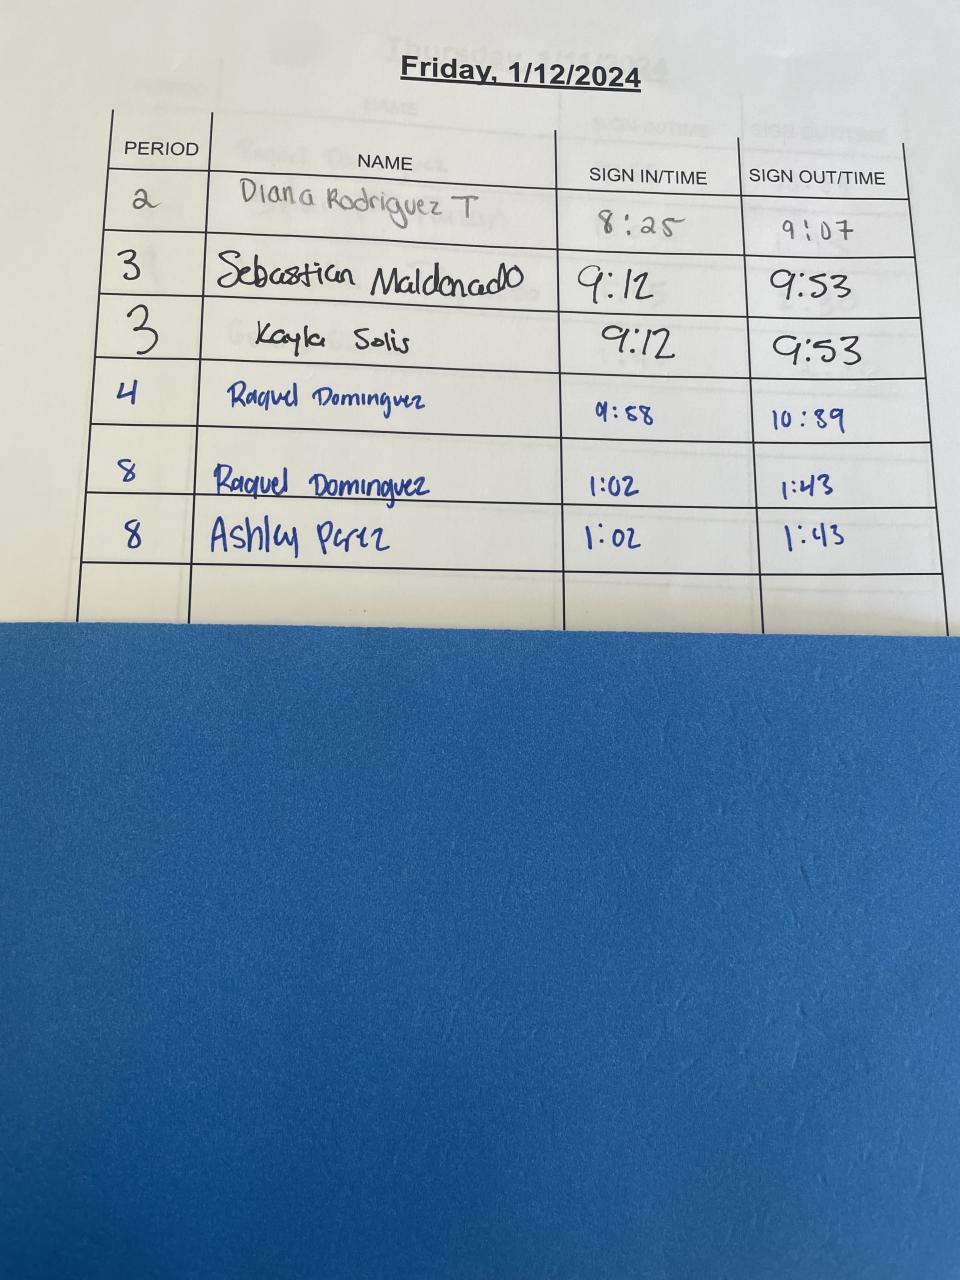 Friday, 1/12/2024
PERIOD NAME SIGN IN/TIME SIGN OUT/TIME
2 Diana Rodriguez T 8:25 9:07
3 Sebastian Maldonado 9:12 9:53
3 Kayla Solis 9:12 9:53
4 Raquel Dominguez 9:58 10:39
8 Raquel Dominguez 1:02 1:43
8 Ashley Perez 1:02 1:43